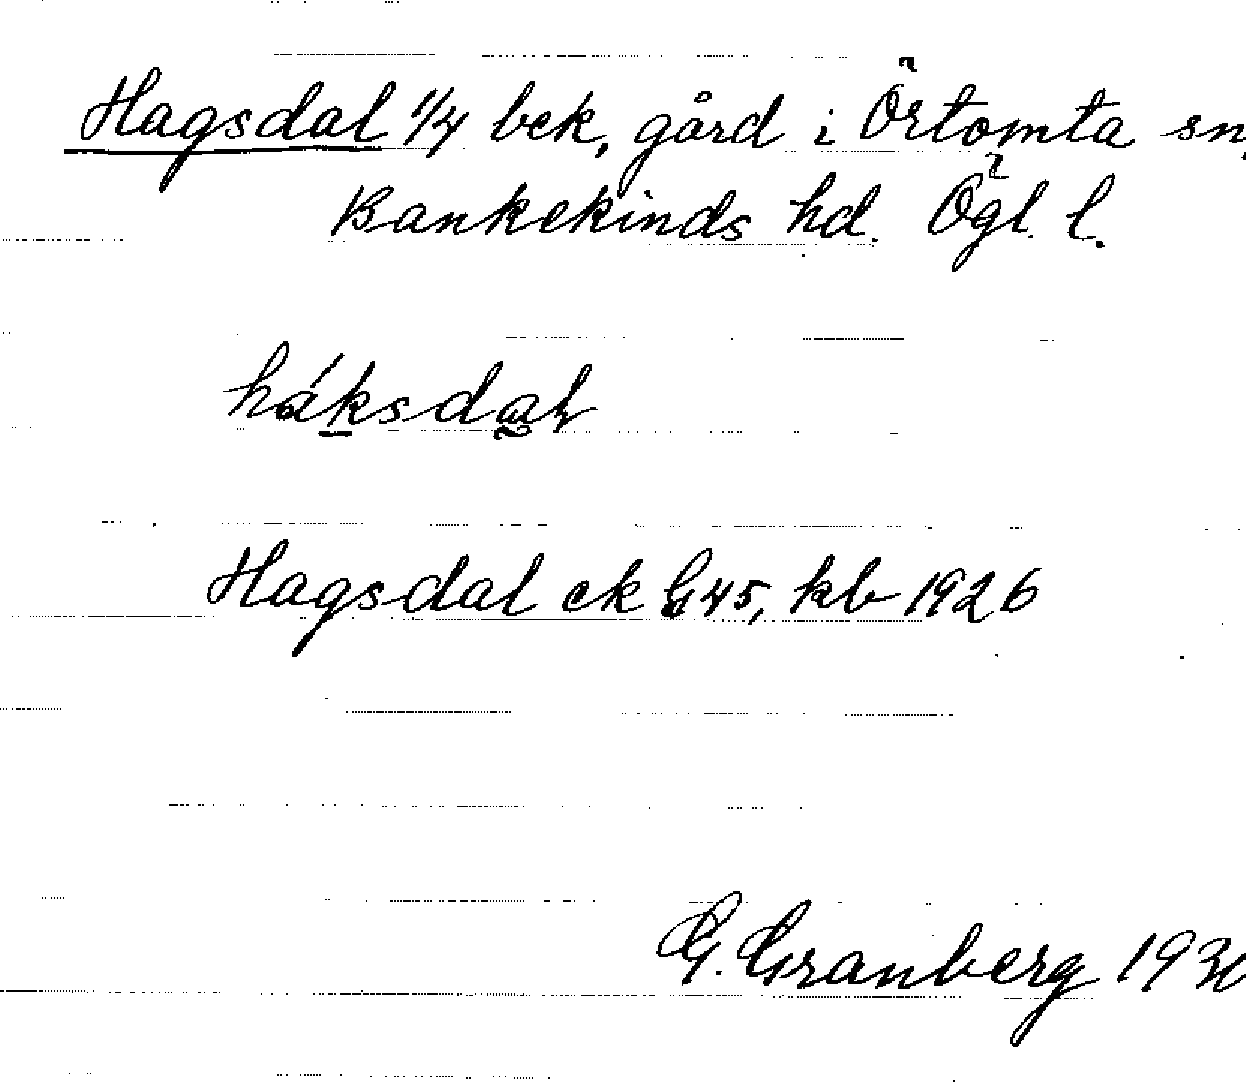 Hagsdal 1/4 bek, gård i Örtomta sn,
Bankekinds hd. Ögl. l.
háksdal
Hagsdal ek G45, kb 1926
G. Granberg 1930